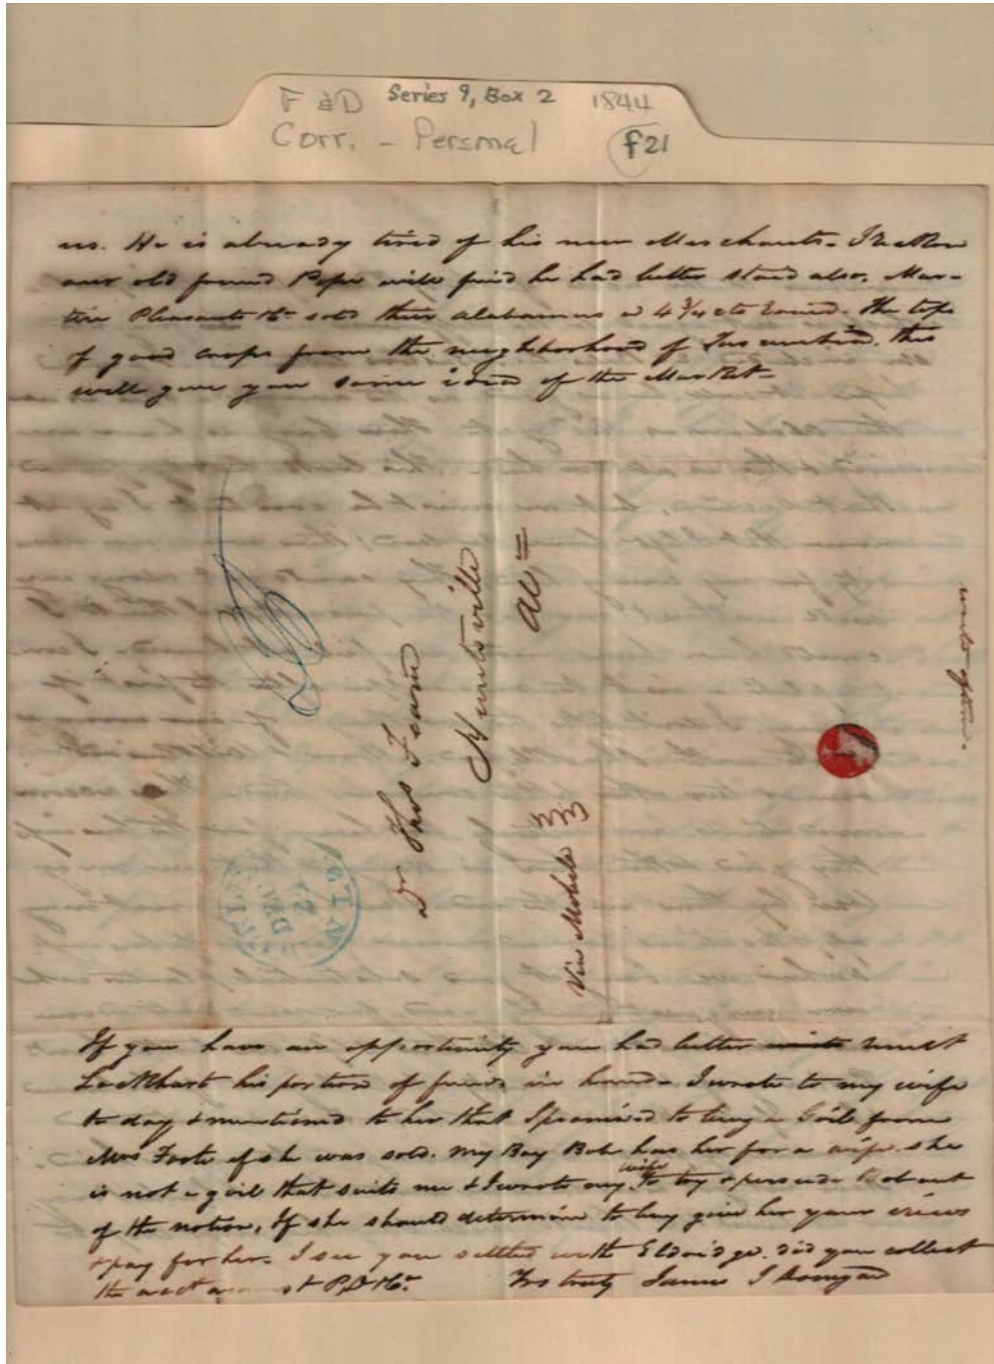 F & D Series 9, Box 2 1844
Corr. - Personal f21
us. He is already tired of his new Merchants. I reckon
our old friend Pope will find he had better staid also. Mar-
tin Pleasants & Co sold their Alabamas a 4 3/4 cts round. the tops
of good crops from the neighborhood of Tuscumbia. this
will give you some idea of the Market-
Dr Thos Fearn
Huntsville
Al
Via Mobile
write often.
DEC
If you have an opportunity you had better write remit
Lockhart his portion of funds in hand. I wrote to my wife
to day & mentioned to her that I promised to buy a Girl from
Mrs Foote if she was sold. My Boy Bob has her for a wife. she
is not a girl that suits me & I wrote my wife to try & persuade Bob out
of the notion. If she should determine to buy give her your views
& pay for her. I see you settled with Eldridge. did you collect
the acct against P D & Co. Yrs truly James J Donegan